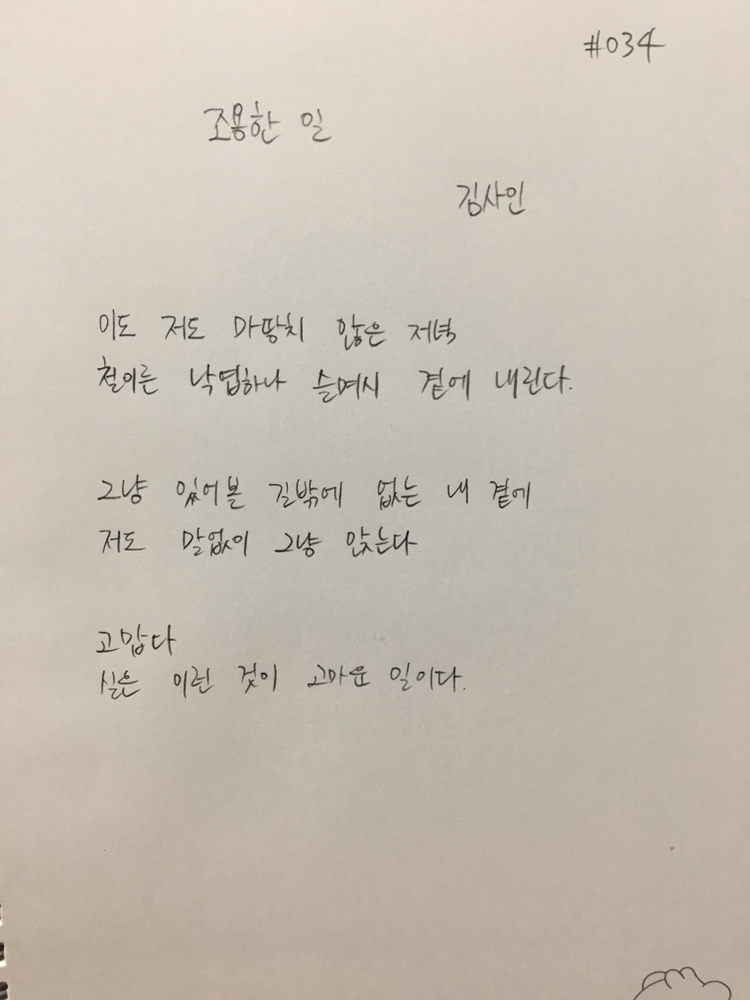 #034
조용한 일
김사인
이도 저도 마땅치 않은 저녁
철이른 낙엽하나 슬며시 곁에 내린다.
그냥 있어볼 길밖에 없는 내 곁에
저도 말없이 그냥 앉는다
고맙다
실은 이런 것이 고마운 일이다.